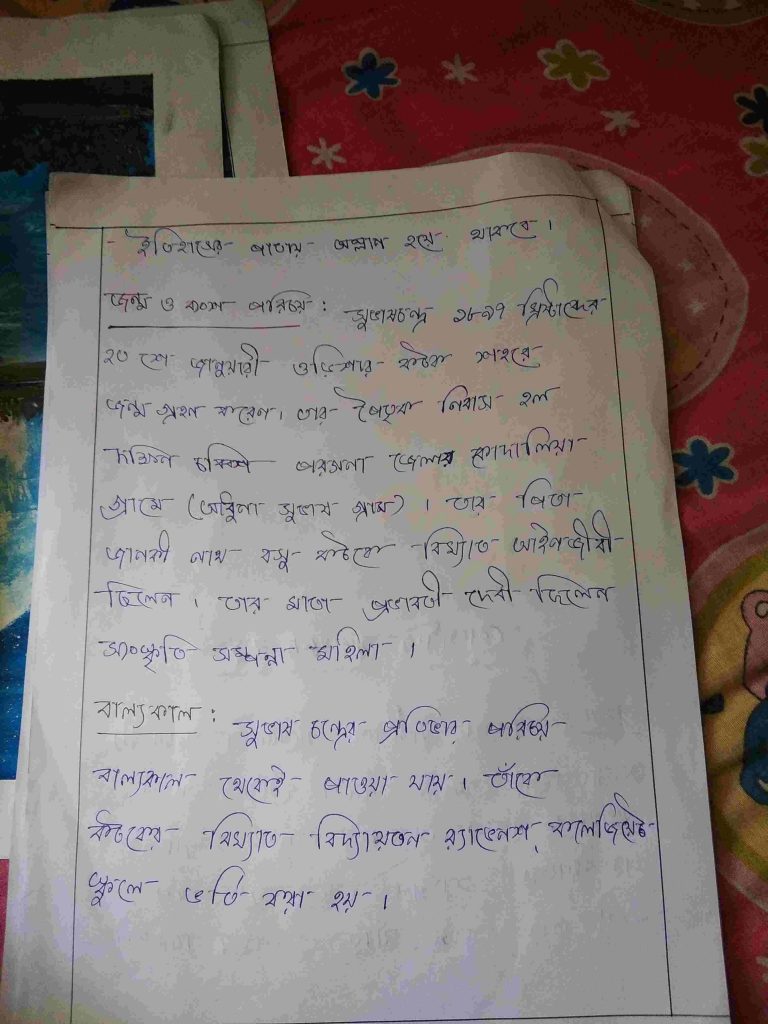 ইতিহাসের পাতায় অম্লান হয়ে থাকবে।
জন্ম ও বংশ পরিচয় : সুভাষচন্দ্র ১৮৯৭ খ্রিস্টাব্দের
২৩ শে জানুয়ারী ওড়িশার কটক শহরে
জন্ম গ্রহন করেন। তার পৈতৃক নিবাস হল
দক্ষিণ চব্বিশ পরগনা জেলার কোদালিয়া
গ্রামে (অধুনা সুভাষ গ্রাম)। তার পিতা
জানকী নাথ বসু কটকে বিখ্যাত আইনজীবী
ছিলেন। তার মাতা প্রভাবতী দেবী ছিলেন
সংস্কৃতি সম্পন্না মহিলা।
বাল্যকাল : সুভাষ চন্দ্রের প্রতিভার পরিচয়
বাল্যকাল থেকেই পাওয়া যায়। তাঁকে
কটকের বিখ্যাত বিদ্যায়তন র‍্যাভেনশ্ কলেজিয়েট
স্কুলে ভর্তি করা হয়।